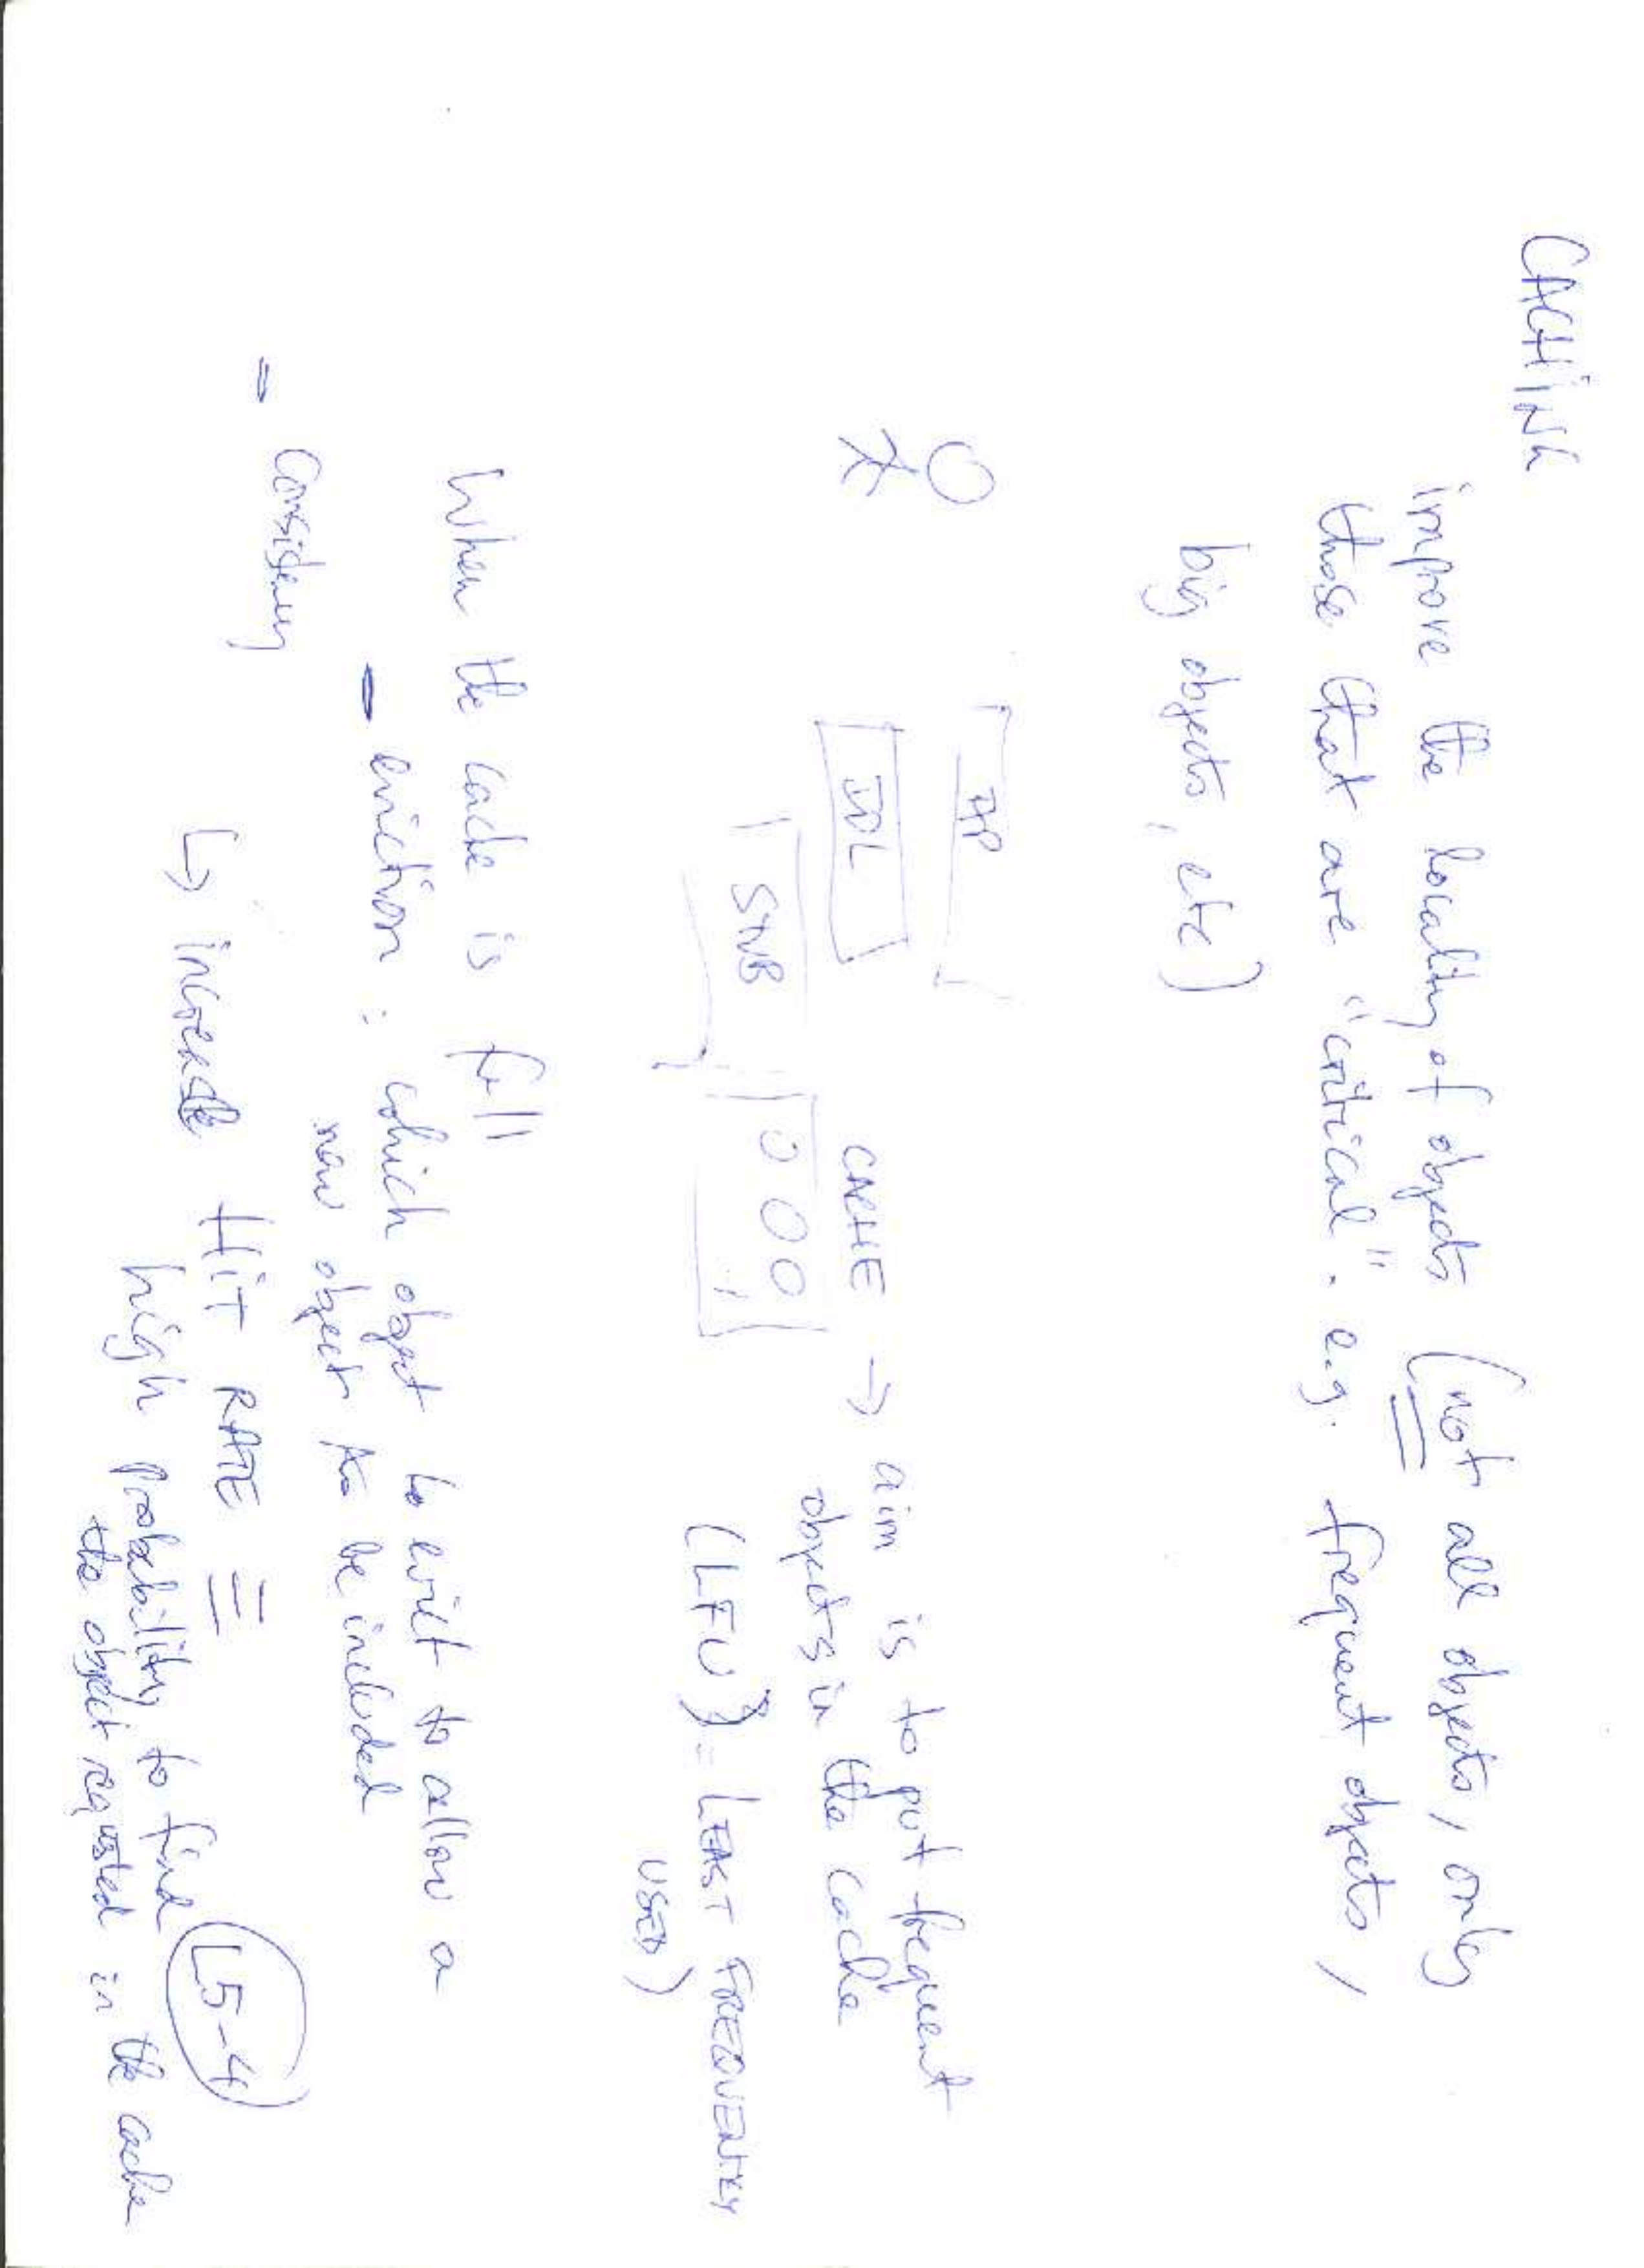 CACHING
improve the locality of objects (not all objects, only
those that are "critical". e.g. frequent objects,
big objects, etc)
AP
IDL
STUB
CACHE → aim is to put frequent
objects in the cache
(LFU) = LEAST FREQUENTLY
USED)
When the cache is full
- eviction : which object to evict to allow a
new object to be included
- Consistency
↳ increase HIT RATE =
high probability to find
the object requested in the cache
L5-4